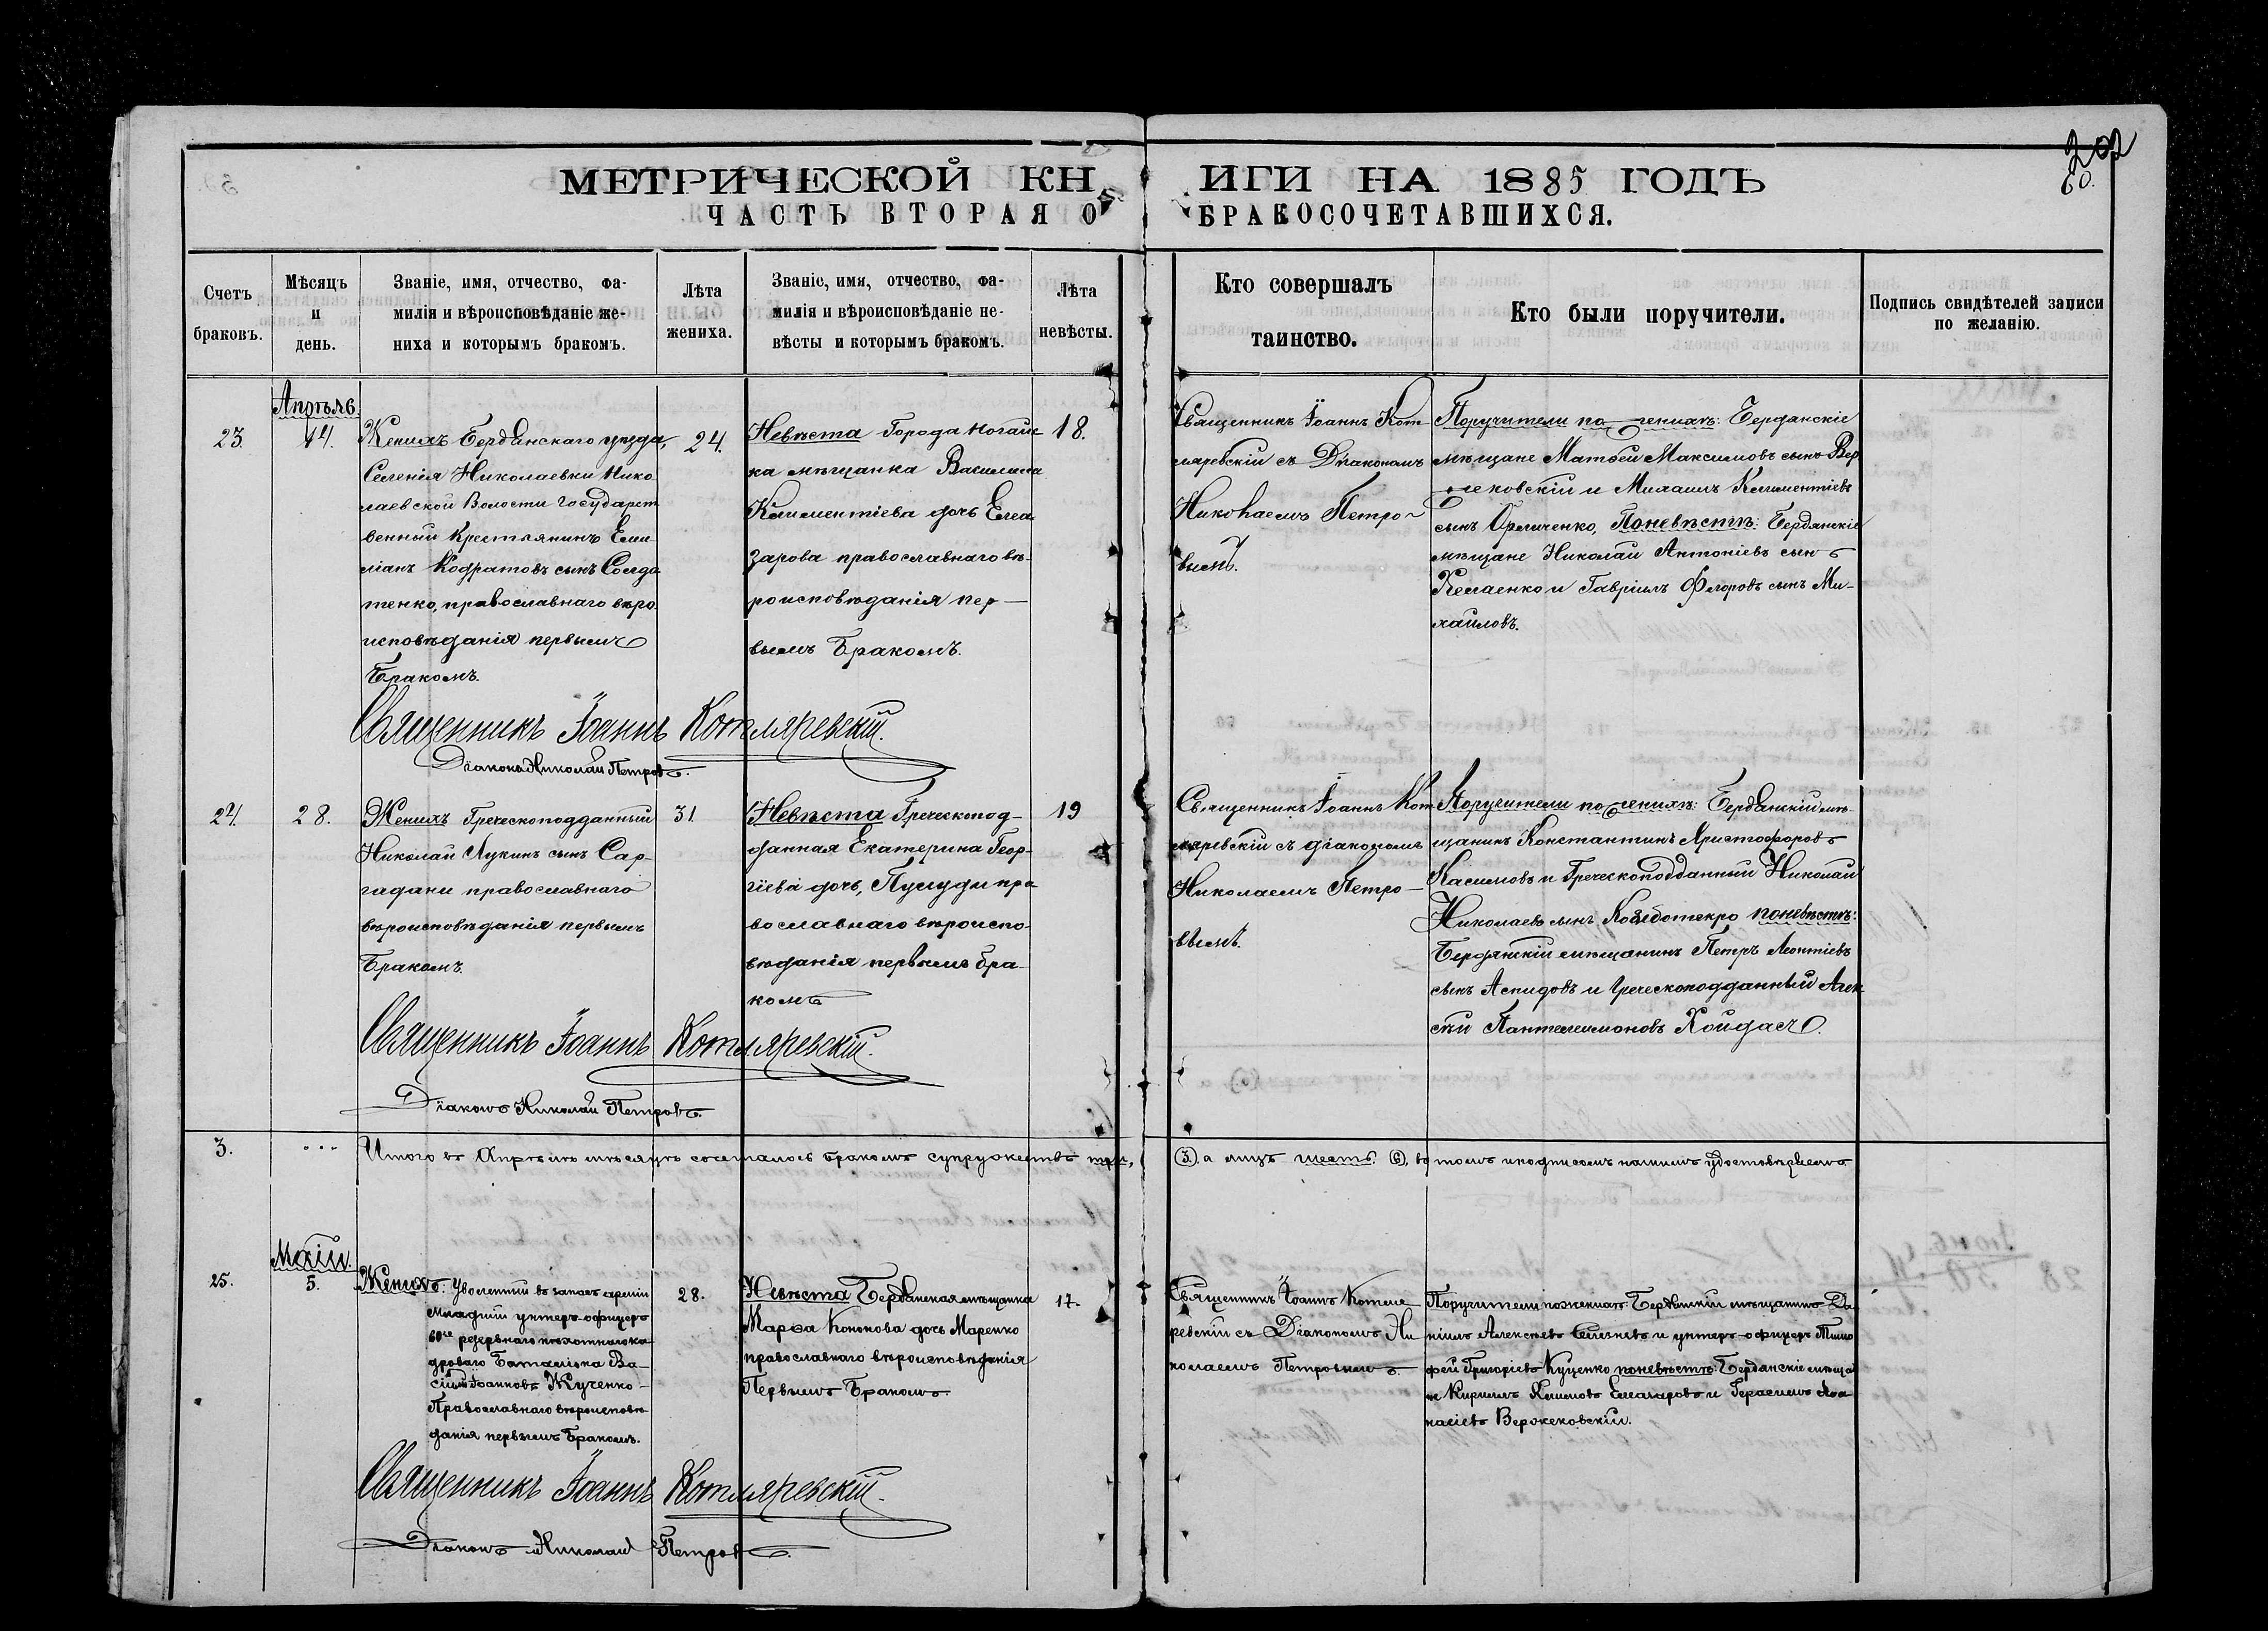 202
60.
МЕТРИЧЕСКОЙ КНИГИ НА 1885 ГОДЪ
ЧАСТЬ ВТОРАЯ О БРАКОСОЧЕТАВШИХСЯ.
Счетъ
браковъ.
Мѣсяцъ
и
день.
Званіе, имя, отчество, фа-
милія и вѣроисповѣданіе же-
ниха и которымъ бракомъ.
Лѣта
жениха.
Званіе, имя, отчество, фа-
милія и вѣроисповѣданіе не-
вѣсты и которымъ бракомъ.
Лѣта
невѣсты.
Кто совершалъ
таинство.
Кто были поручители.
Подпись свидѣтелей записи
по желанію.
23.
Апрѣль
14.
Женихъ Бердянскаго уѣзда,
Селенія Николаевки Нико
лаевской Волости Государст
венный Крестьянинъ Еми
ліанъ Кодратовъ сынъ Солда
тенко, православнаго вѣро
исповѣданія первымъ
Бракомъ.
24.
Невѣста Города Ногайс
ка мѣщанка Василиса
Климентіева дочь Елеа
зарова православнаго вѣ-
роисповѣданія пер-
вымъ Бракомъ.
18.
Священникъ Іоаннъ Кот
ляревскій съ Діакономъ
Николаемъ Петро-
вымъ.
Поручители по женихѣ: Бердянскіе
мѣщане Матѳей Максимовъ сынъ Вер
жековскій и Михаилъ Климентіевъ
сынъ Орличенко, Поневѣстѣ: Бердянскіе
мѣщане Николай Антоніевъ сынъ
и Гавріилъ Ѳедоровъ сынъ Ми-
хайловъ.
Священникъ Іоаннъ Котляревскій.
Діаконъ Николай Петровъ.
24.
28.
Женихъ Греческоподданный
Николай Лукинъ сынъ Сар-
гадани православнаго
вѣроисповѣданія первымъ
Бракомъ.
31.
Невѣста Греческопод-
данная Екатерина Геор-
гіева дочь, православнаго вѣроиспо-
вѣданія первымъ бра-
комъ
19
Священникъ Іоаннъ Кот
ляревскій съ діакономъ
Николаемъ Петро-
вымъ.
Поручители по женихѣ: Бердянскій мѣ-
щанинъ Константинъ Христофоровъ
Касимовъ и Греческоподданный Николай
Николаевъ сынъ поневѣстѣ:
Бердянскій мѣщанинъ Петръ Леонтіевъ
сынъ Аспидовъ и Греческоподданный Алек
сѣй Пантелеимоновъ Хойдасъ.
Священникъ Іоаннъ Котляревскій.
Діаконъ Николай Петровъ.
3. ... Итого въ Апрѣлѣ мѣсяцѣ сочеталось бракомъ супружествъ три, (3). а лицъ шесть (6), въ томъ и подписомъ нашимъ удостовѣряемъ
25.
Маій.
5.
Женихъ: Уволенный въ запасъ арміи
младшій унтеръ-офицеръ
60го резервнаго пѣхотнаго ка
дроваго Баталіона Ва-
силій Іоанновъ Жученко-
Православнаго вѣроисповѣ
данія первымъ Бракомъ.
28.
Невѣста Бердянская мѣщанка
Марѳа Кононова дочь Маренко
православнаго вѣроисповѣданія
Первымъ Бракомъ
17.
Священникъ Іоаннъ Котля
ревскій съ Діакономъ Ни
колаемъ Петровымъ.
Поручители по женихѣ Бердянскій мѣщанинъ Да
ніилъ Алексѣевъ Селезневъ и унтеръ-офицеръ Тимо
ѳей Григоріевъ Куценко поневѣстѣ: Бердянскіе мѣща
не Кириллъ Климовъ Елеазаровъ и Герасимъ Аѳа
насіевъ Вержековскій.
Священникъ Іоаннъ Котляревскій.
Діаконъ Николай Петровъ.